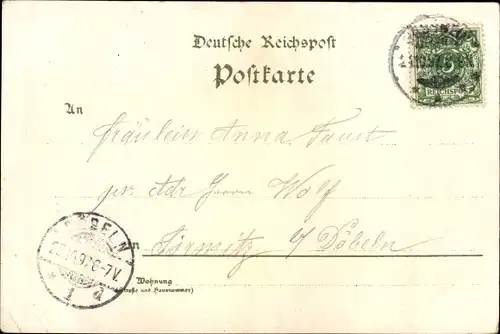 Deutsche Reichspost
Postkarte
An
Fräulein Anna Faust
pr. Adr. Herrn Wolf
in
Sörmitz b/ Döbeln
Wohnung
(Straße und Hausnummer)
REICHSPOST
DÖBELN
6-7V.